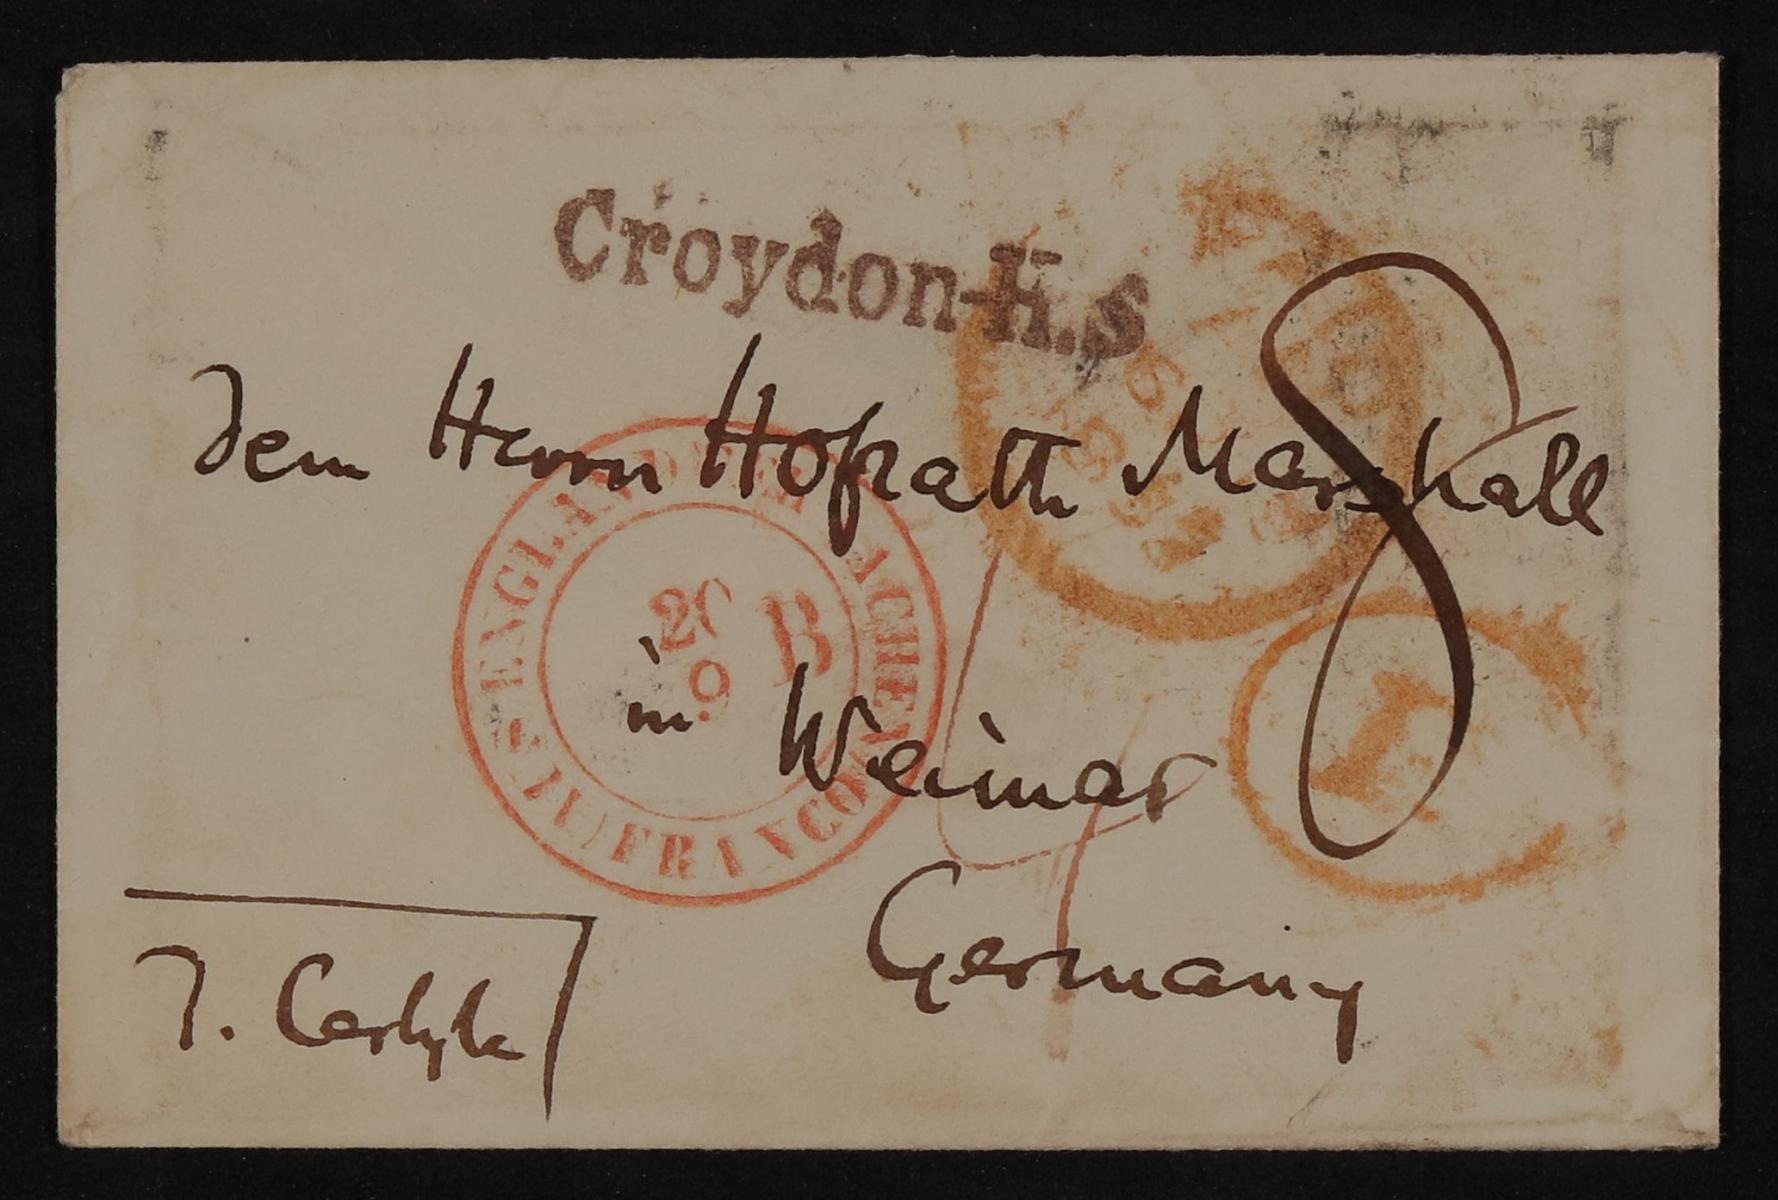 Croydon-H.S
dem Herrn Hofrath Marshall
ENGLAND PER AACHEN
20 B
9
in Weimar
FRANCO
Germany
T. Carlyle
PAID
1